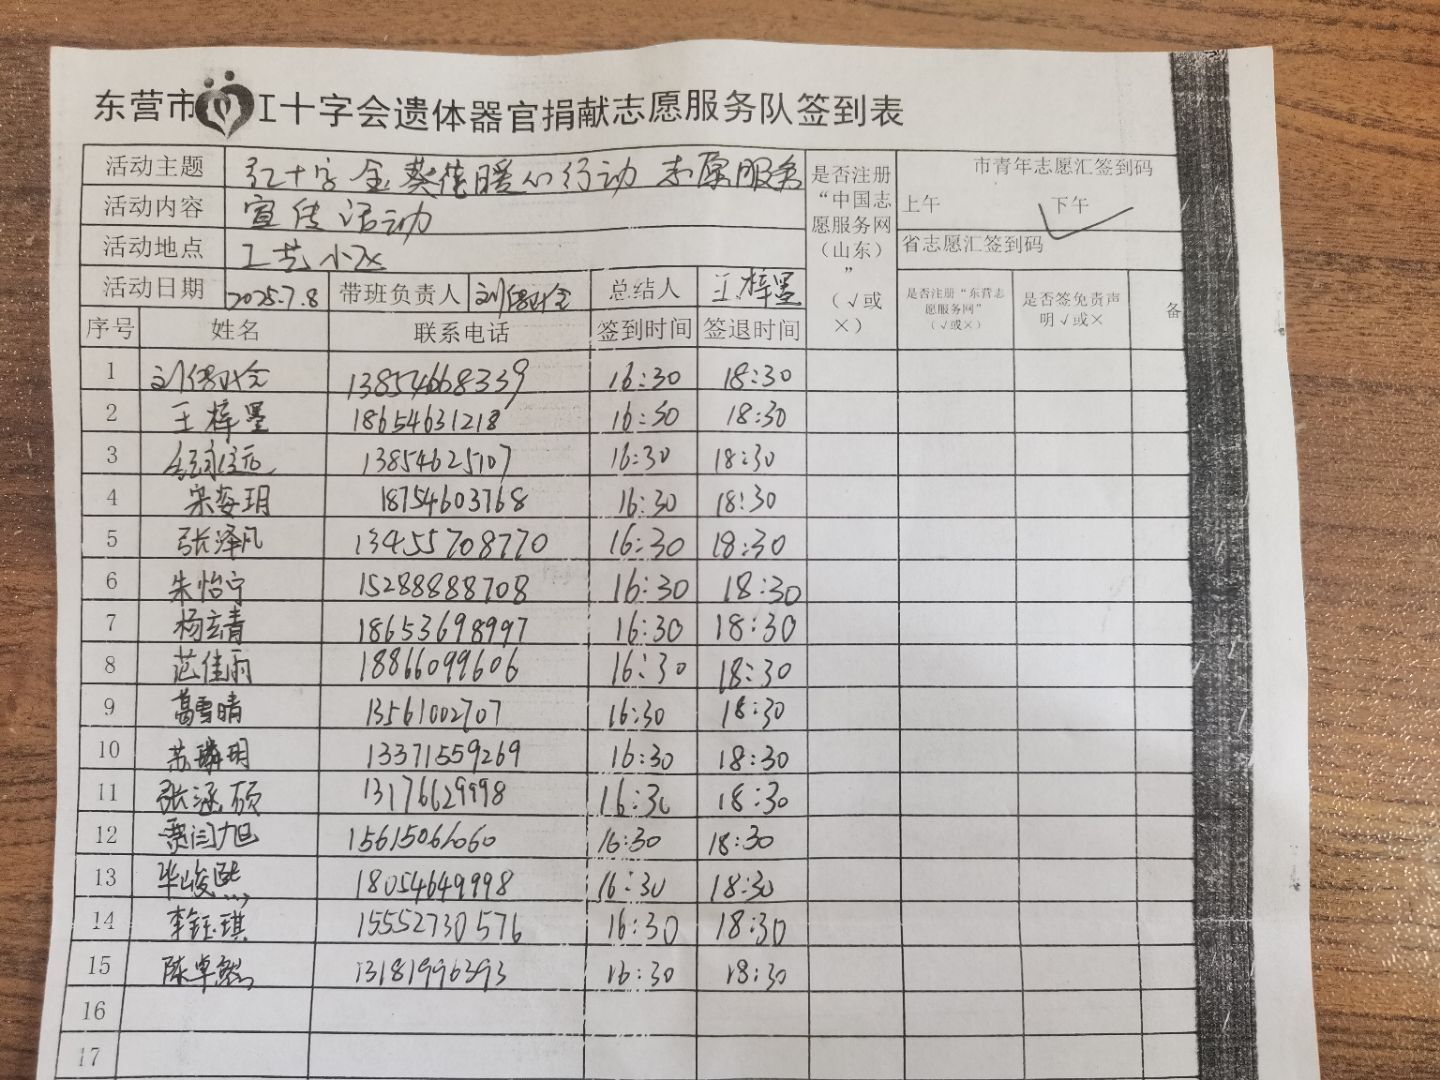 东营市红十字会遗体器官捐献志愿服务队签到表
活动主题 红十字 金葵花暖心行动 志愿服务
活动内容 宣传活动
活动地点 工艺小区
活动日期 2025.7.8 带班负责人 总结人 王梓墨
是否注册“中国志愿服务网(山东)”(√或×)
市青年志愿汇签到码
上午 下午 √
省志愿汇签到码
序号 姓名 联系电话 签到时间 签退时间 是否注册“东营志愿服务网”(√或×) 是否签免责声明√或× 备
1 13854668339 16:30 18:30
2 王梓墨 18654631218 16:30 18:30
3 13854625107 16:30 18:30
4 宋姿玥 18754603768 16:30 18:30
5 张泽凡 13455708770 16:30 18:30
6 朱怡宁 15288888708 16:30 18:30
7 杨玄青 18653698997 16:30 18:30
8 范佳雨 18866099606 16:30 18:30
9 葛雪晴 13561002707 16:30 18:30
10 苏璘玥 13371559269 16:30 18:30
11 张涵硕 13176629998 16:30 18:30
12 贾闫旭 15615066060 16:30 18:30
13 毕峻熙 18054649998 16:30 18:30
14 李钰琪 15552730576 16:30 18:30
15 陈卓然 13181996393 16:30 18:30
16
17